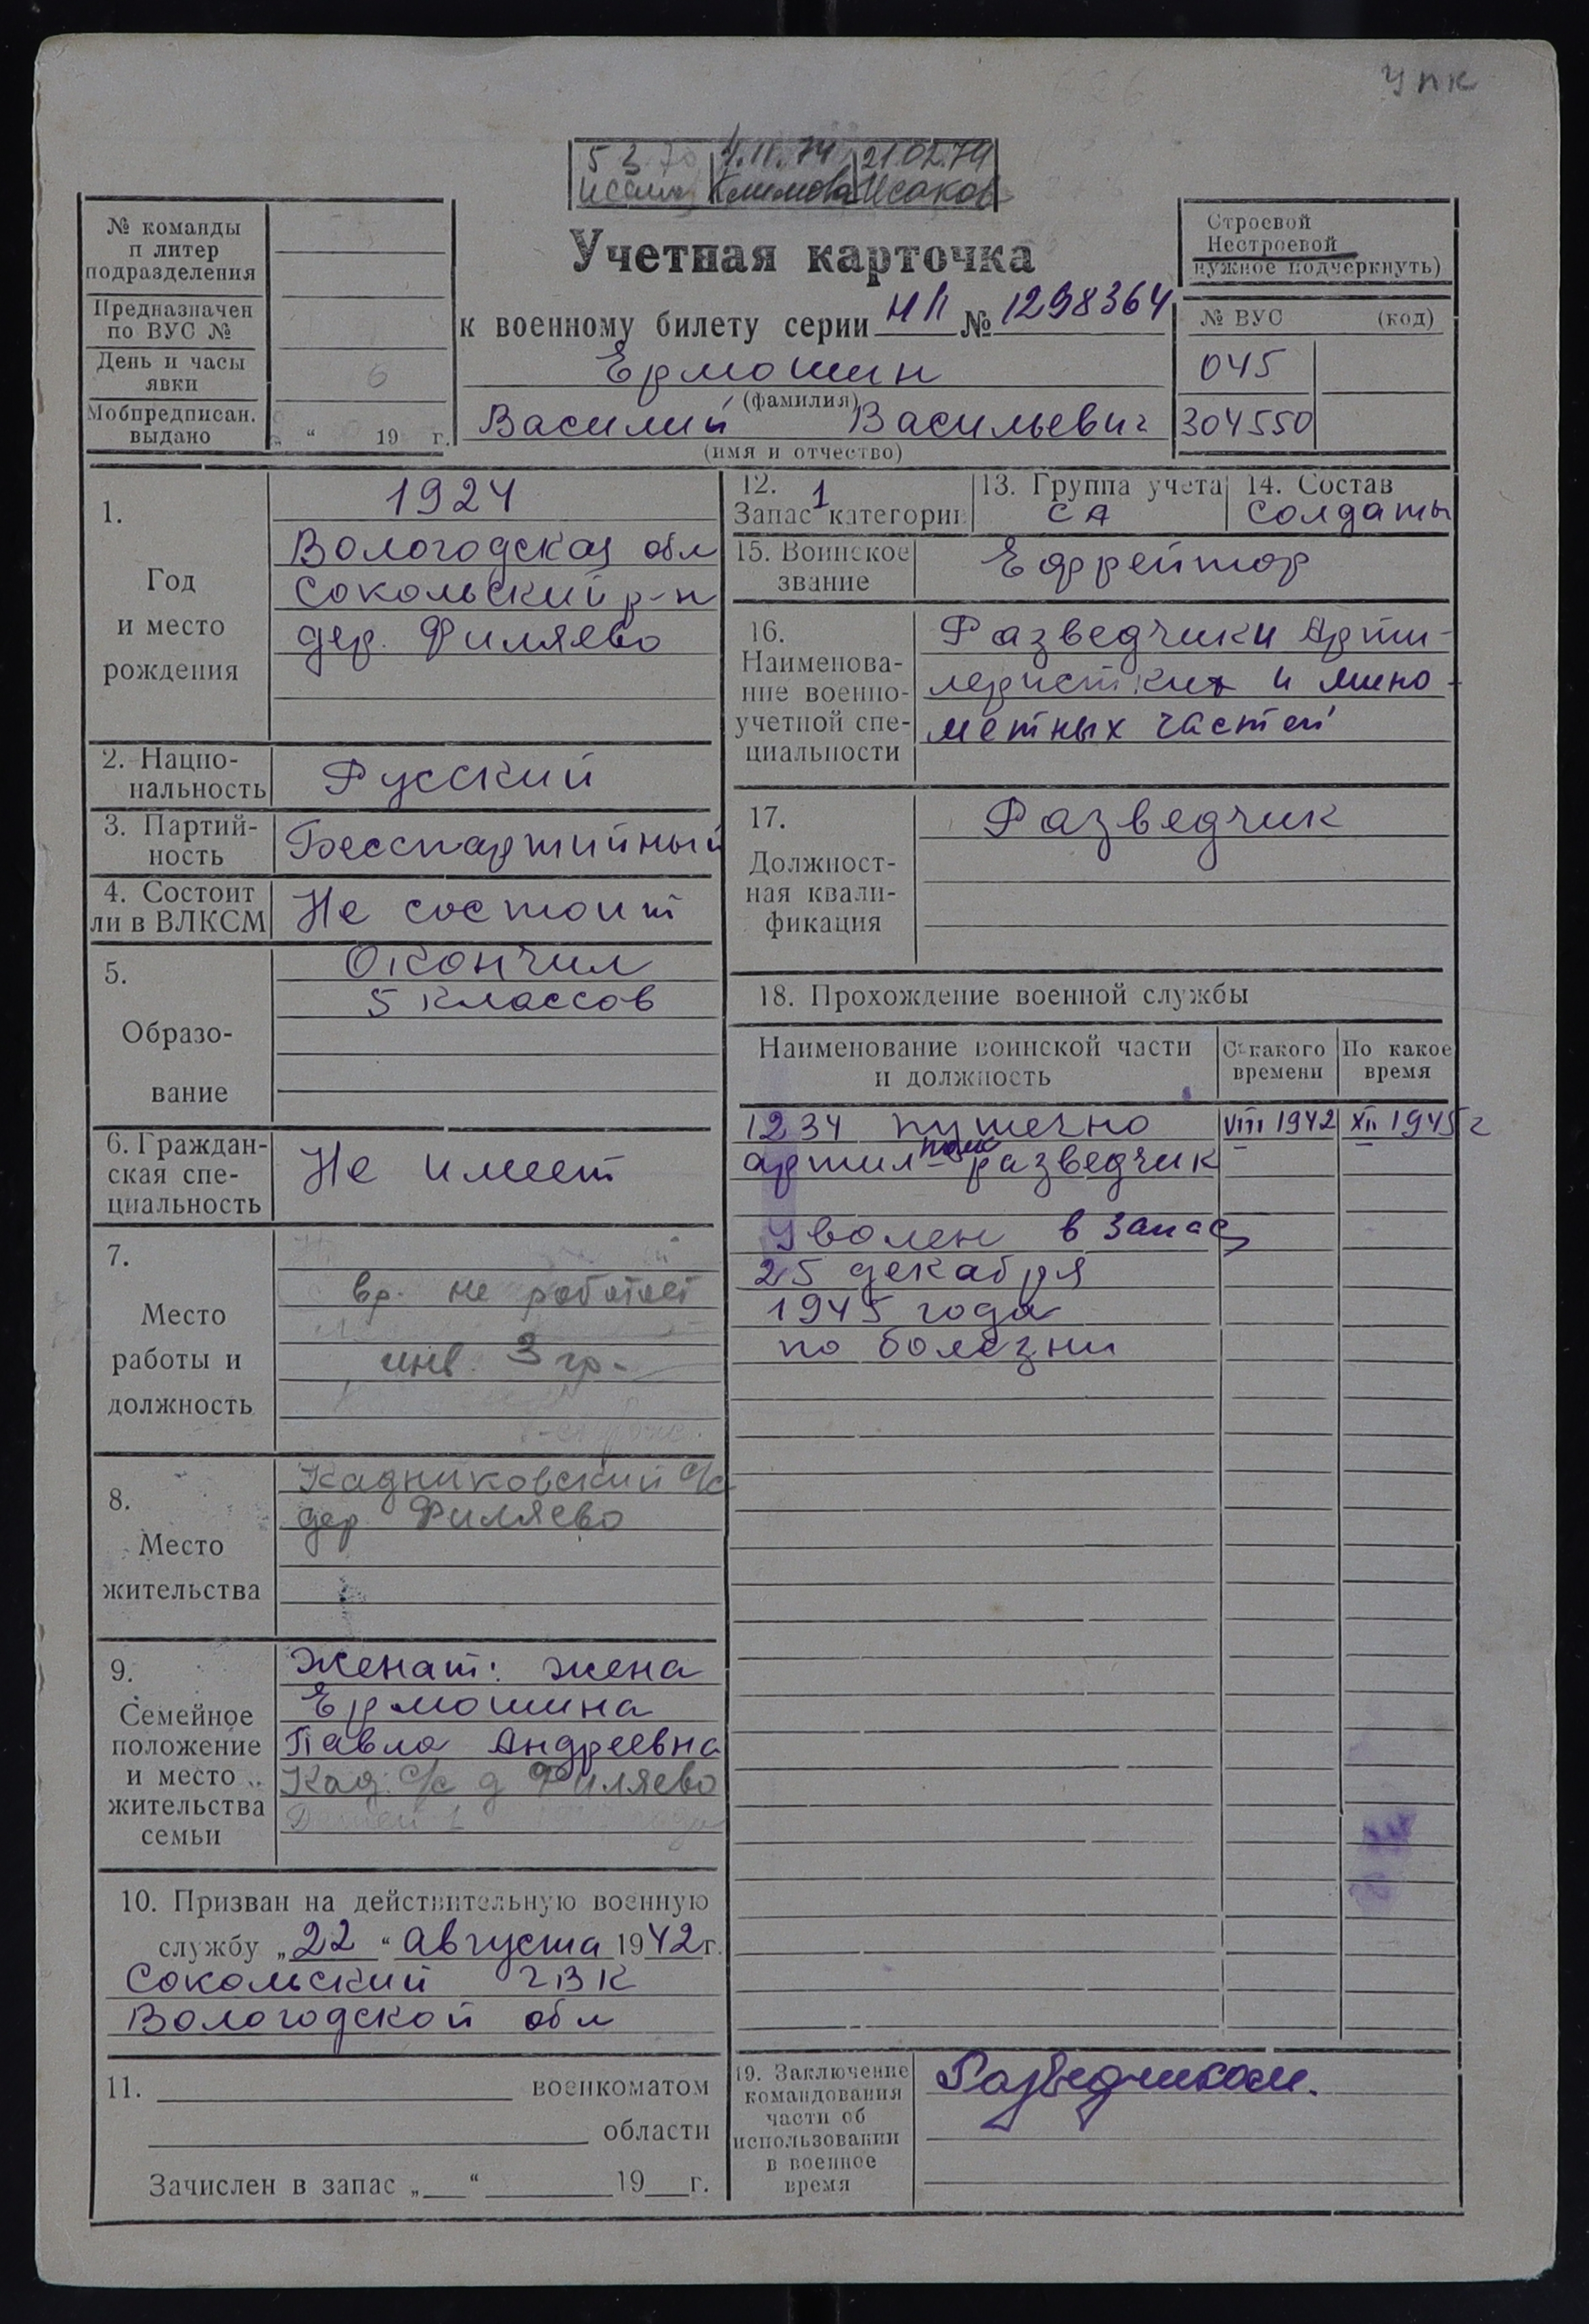 упк
5 3 70 1.11.74 21.02.74
Климова Исаков
№ команды
п литер
подразделения
Предназначен
по ВУС №
День и часы
явки
6
Мобпредписан.
выдано
„ “ 19 г.
Учетная карточка
к военному билету серии НП № 1298364
Ермошин
(фамилия)
Василий Васильевич
(имя и отчество)
Строевой
Нестроевой
нужное подчеркнуть)
№ ВУС (код)
045
304550
1.
Год
и место
рождения
1924
Вологодская обл
Сокольский р-н
дер. Филяево
2. Нацио-
нальность
Русский
3. Партий-
ность
Беспартийный
4. Состоит
ли в ВЛКСМ
Не состоит
5.
Образо-
вание
Окончил
5 классов
6. Граждан-
ская спе-
циальность
Не имеет
7.
Место
работы и
должность
вр. не работает
инв. 3 гр.
8.
Место
жительства
Кадниковский с/с
дер Филяево
9.
Семейное
положение
и место
жительства
семьи
Женат: жена
Ермошина
Павла Андреевна
Кад. с/с д Филяево
Детей 1
10. Призван на действительную военную
службу „22“ августа 1942 г.
Сокольский ГВК
Вологодской обл
11. военкоматом
области
Зачислен в запас „ “ 19 г.
12. 1
Запас категории
13. Группа учета
СА
14. Состав
Солдаты
15. Воинское
звание
Ефрейтор
16.
Наименова-
ние военно-
учетной спе-
циальности
Разведчики Арти-
леристких и мино-
метных частей
17.
Должност-
ная квали-
фикация
Разведчик
18. Прохождение военной службы
Наименование воинской части
и должность
С какого
времени
По какое
время
1234 пушечно VIII 1942 XII 1945 г
артил- полк разведчик
Уволен в запас
25 декабря
1945 года
по болезни
19. Заключение
командования
части об
использовании
в военное
время
Разведчиком.